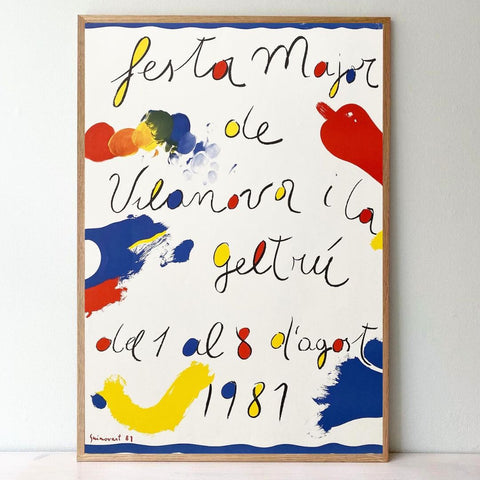 festa Major
de
Vilanova i la
geltrú
del 1 al 8 d'agost
1981
Guinovart 81